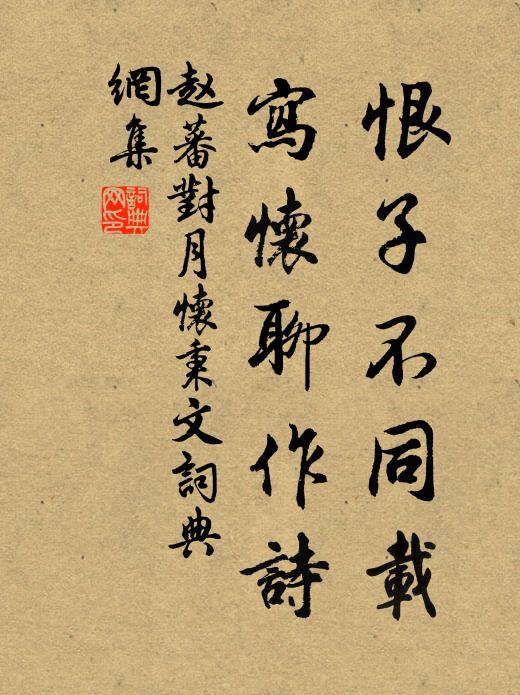 恨子不同載
寫懷聊作詩
赵蕃對月懷秉文詞典
網集
詞典
网印